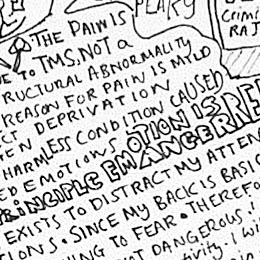 PEAKY
Crimi
RAJ
THE PAIN IS
TO TMS, NOT A
RUCTURAL ABNORMALITY
REASON FOR PAIN IS MILD
EN DEPRIVATION
HARMLESS CONDITION CAUSED
ED EMOTIONS
EMOTION IS RE
PRINCIPLE EM ANGER RE
EXISTS TO DISTRACT MY ATTEN
IONS. SINCE MY BACK IS BASIC
ING TO FEAR. THEREFO
OT DANGEROUS.
tivity. I wi